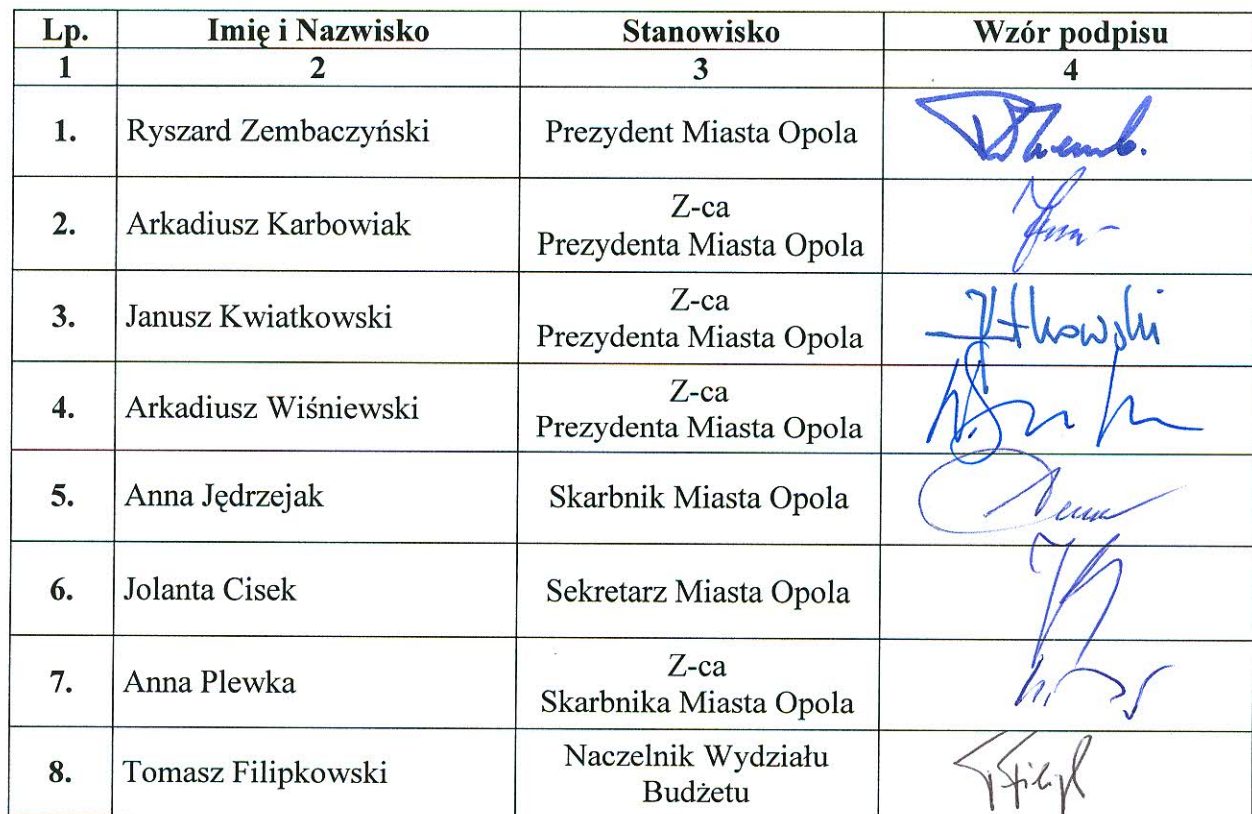 Lp. Imię i Nazwisko Stanowisko Wzór podpisu
1 2 3 4
1. Ryszard Zembaczyński Prezydent Miasta Opola
2. Arkadiusz Karbowiak Z-ca
Prezydenta Miasta Opola
3. Janusz Kwiatkowski Z-ca
Prezydenta Miasta Opola
4. Arkadiusz Wiśniewski Z-ca
Prezydenta Miasta Opola
5. Anna Jędrzejak Skarbnik Miasta Opola
6. Jolanta Cisek Sekretarz Miasta Opola
7. Anna Plewka Z-ca
Skarbnika Miasta Opola
8. Tomasz Filipkowski Naczelnik Wydziału
Budżetu